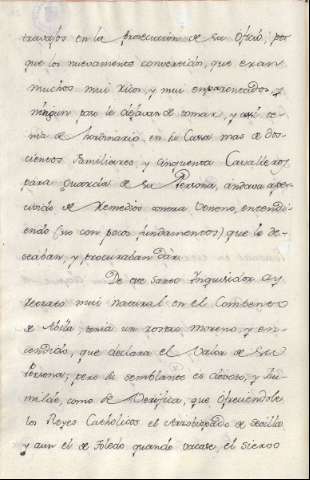 travajos en la prosecucion de su Oficio, por
que los nuevamente convertidos, que eran
muchos mui ricos, y mui emparentados y
ningun paso le dejavan de tomar, y assi te
nia de hordinario en su Casa mas de dos-
cientos familiares, y cinquenta Cavalleros
para Guardia de su Persona, andava aper
civido de Remedios contra Veneno, entendi-
endo (no con pocos fundamentos) que lo de-
seaban, y procuraban dar.
De este Santo Inquisidor ay
retrato mui natural en el Combento
de Abila; tenia un rostro moreno, y en-
cendido, que declara el Valor de su
Persona; pero de semblante es devoto, y hu
milde, como se Verifica, que ofreciendole
los Reyes Catholicos el Arzobispado de Sevilla
y aun el de Toledo quando vacase, el siervo